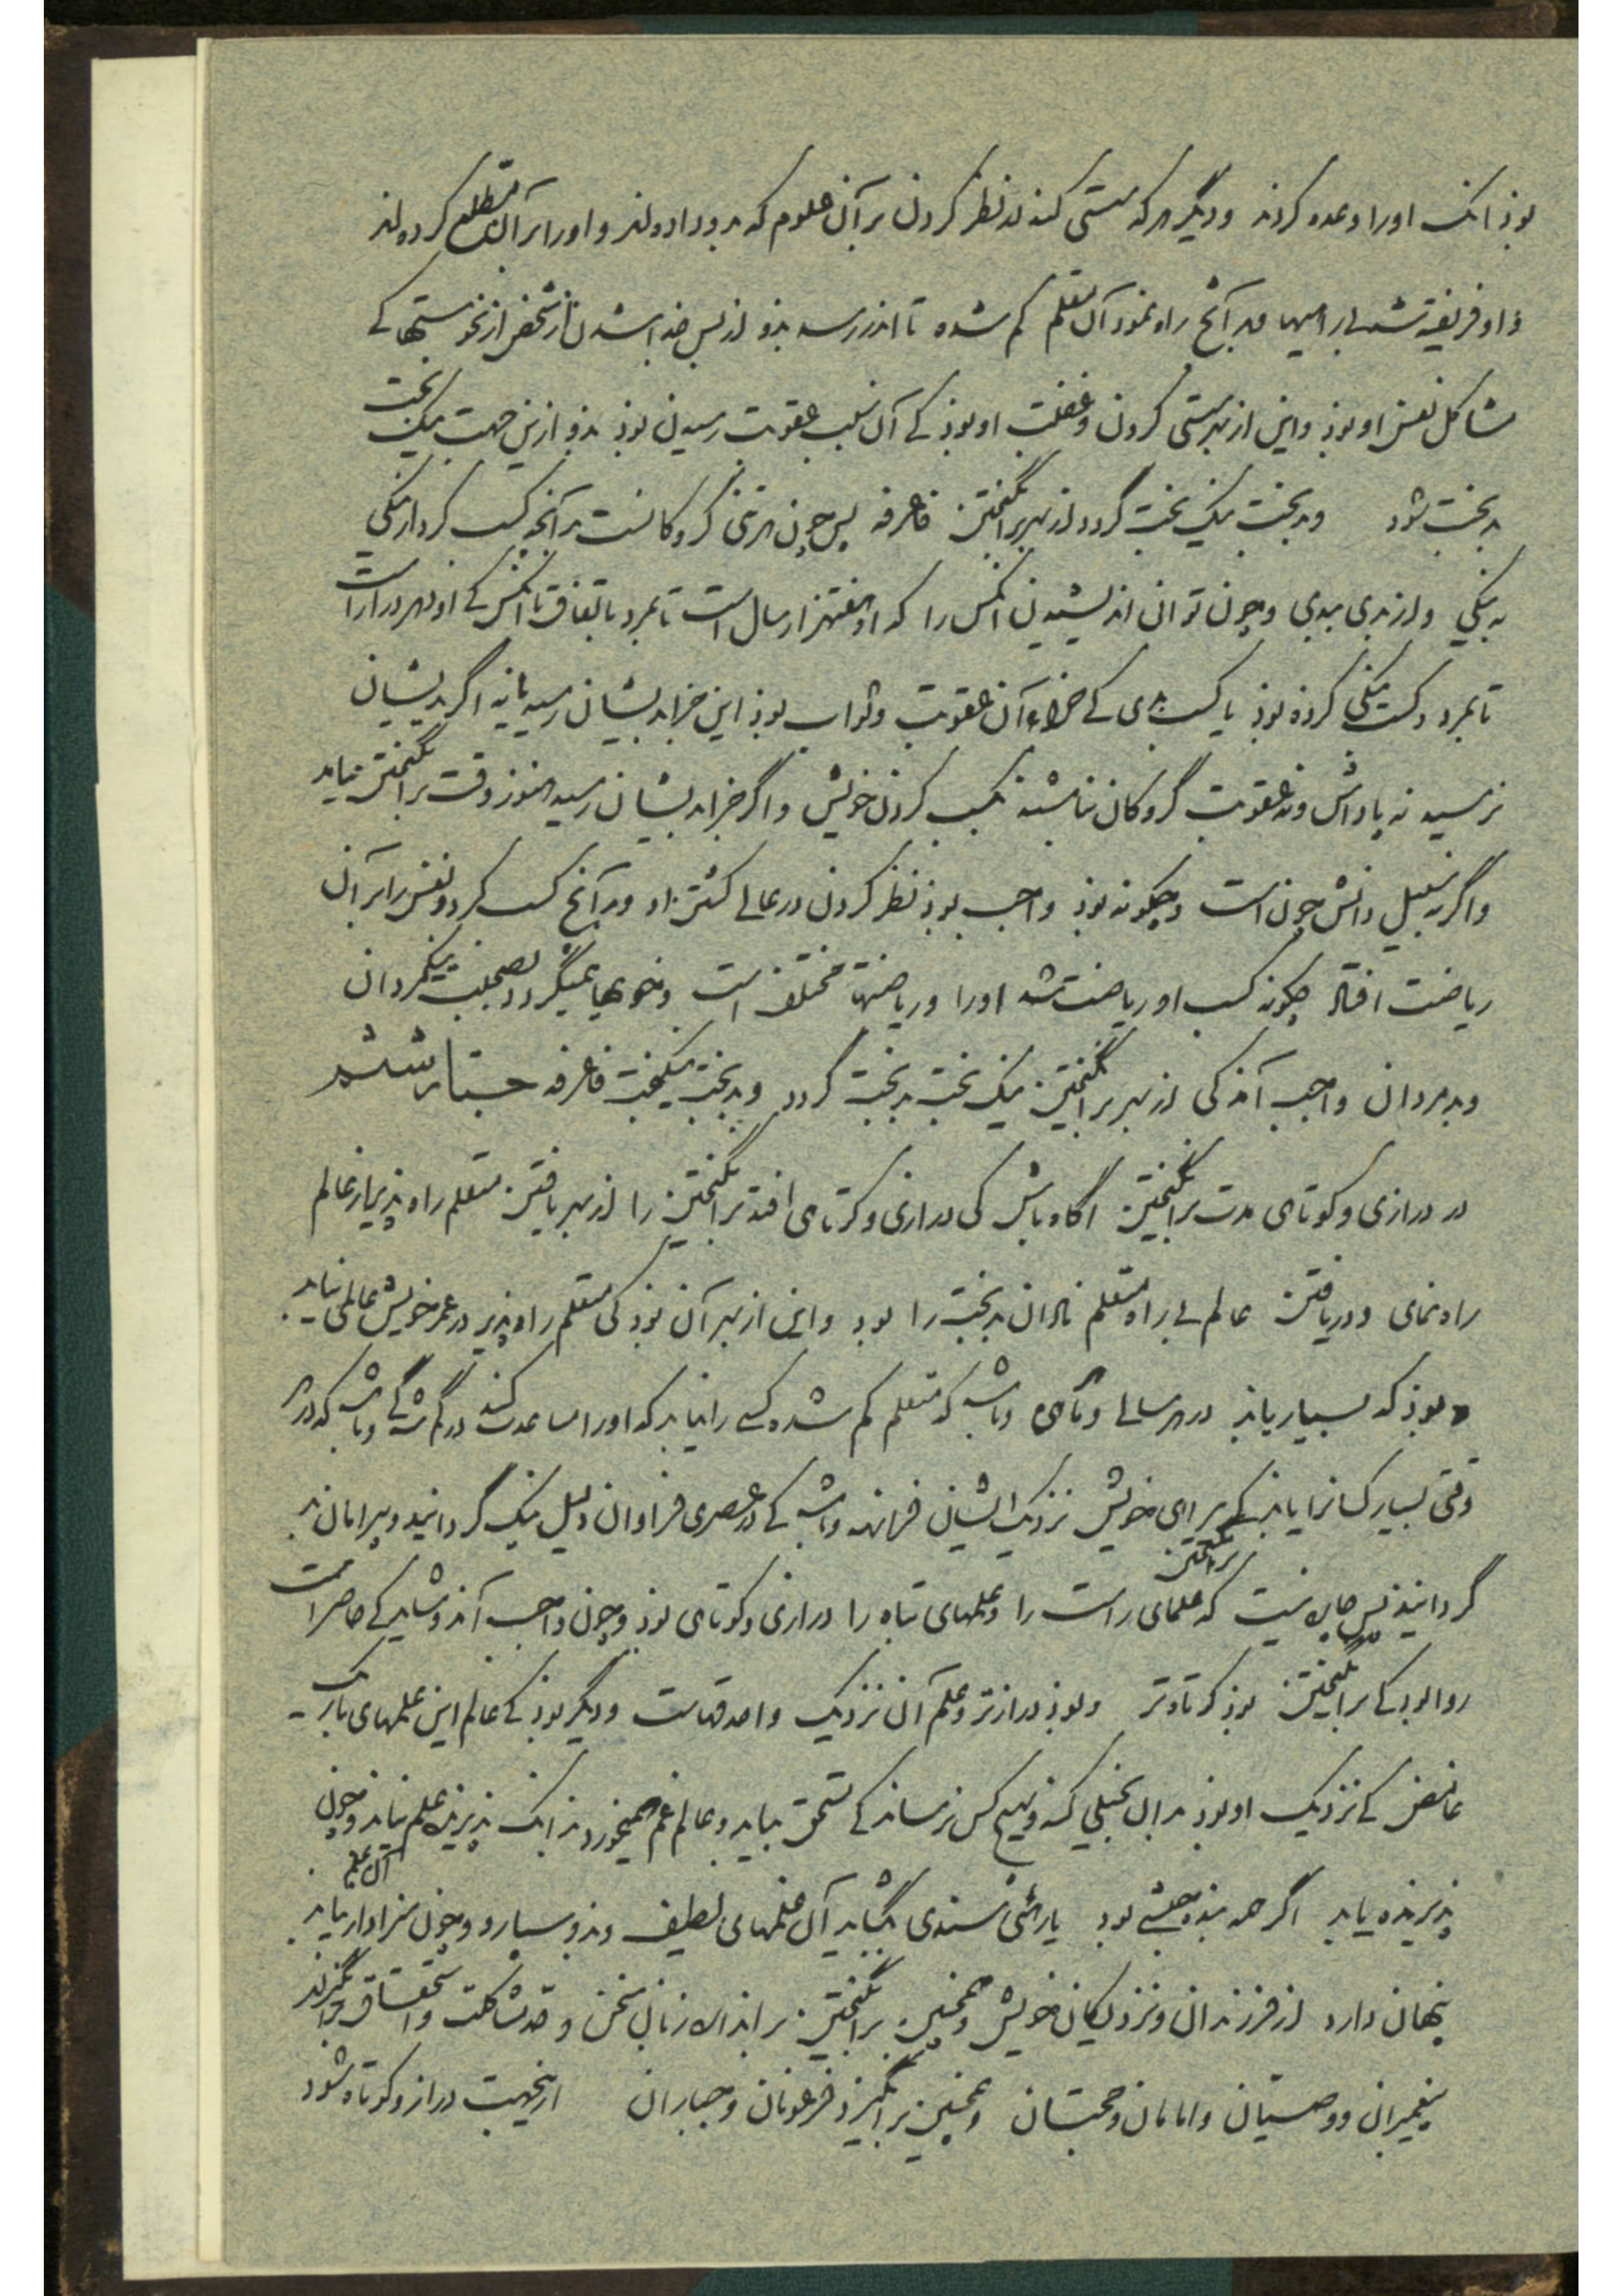 بوذ انک اورا وعده کردند ودیگر هرکه سستی کند از نظر کردن برآن علوم که بدو داده‌اند و اورا بر آن مطلع کرده‌اند
واو فریفته شد بی‌راهیها وبدآنچ راه نمود آن متعلم کم شده تا اندر رسد بدو از پس جدا شدن از شخص از نحوستهای کی
مشاکل نفس او بوذ واین از بهر سستی کردن وغفلت او بوذ کی آن سبب عقوبت رسیدن بوذ بذو ازین جهت نیک بخت
بدبخت شود وبدبخت نیک بخت گردد از بهر برانگیختن فاعرفه پس چون هر تنی گروکانست بدآنچه کسب کرد از نیکی
به نیکی واز بدی ببدی وچون توان اندیشیدن انکس را که او هفتهزار سال است تا بمرد باتفاق با انکس کی او
تا بمرد وکسب نیکی کرده بوذ یا کسب بدی کی جزاء آن عقوبت وثواب بوذ این جزا بدیشان رسید یا نه اگر بدیشان
نرسید نه پاداش ونه عقوبت گروکان نباشند بکسب کردن خویش واگر جزا بدیشان رسید هنوز وقت برانگیختن نیامد
واگر بسبیل دانش چون است وچگونه بوذ واجب بوذ نظر کردن در عالمی کش زاد وبدآنچ کسب کرد ونفس را بر آن
ریاضت افتاد چگونه کسب او ریاضت شد اورا وریاضتها مختلف است وخویها همیگردد بصحبت نیکمردان
وبدمردان واجب آمد کی از بهر برانگیختن نیک بخت بدبخت گردد وبدبخت نیکبخت فاعرفه جستار ششم
در درازی وکوتاهی مدت برانگیختن اگاه باش کی درازی وکوتاهی افتد برانگیختن را از بهر یافتن متعلم راه پذیر از عالم
راه نمای ودریافتن عالم بی راه متعلم نادان بدبخت را بود واین از بهر آن بوذ کی متعلم راه پذیر در عمر خویش عالمی نیابد
وبوذ که بسیار یابذ در هر سالی وماهی وباشد که متعلم کم شده کسی را نیابد که اورا مساعدت کند در گم شدگی وباشد که در هر
وقتی بسیار کسانرا یابذ کی برای خویش نزدیک ایشان فرمانند وباشد کی در عصری فراوان دلیل نیک گردانید وبیرامان بد
گردانیذ پس چاره نیست که علمای راست را وعلمهای تباه را برانگیختن درازی وکوتاهی بوذ وچون واجب آمذ وشاید کی حاضر است
روا بود کی برانگیختن بوذ کوتاه‌تر وبوذ درازتر وعلم آن نزدیک واحد قهاست ودیگر بوذ کی عالم این علمهای باریک
غامض کی نزدیک او بوذ بدان بخیلی کند وبهیچ کس نرساند کی مستحق نیابد وعالم غم همیخورد بدانک پذیرنده علم نیابد وچون
پذیرنده یابد اگر همه بنده حبشی بود یا رهی سندی بگشاید آن علمهای لطیف وبذو سپارد وچون سزاوار نیابد آن علم
پنهان دارد از فرزندان ونزدیکان خویش وهمچنین برانگیختن بر اندازه زبان سخن و مشاکلت واستحقاق برانگیزاند
پیغمبران ووصیان وامامان وحجتان وهمچنین برانگیزد فرعونان وجباران ازینجهت دراز وکوتاه شود